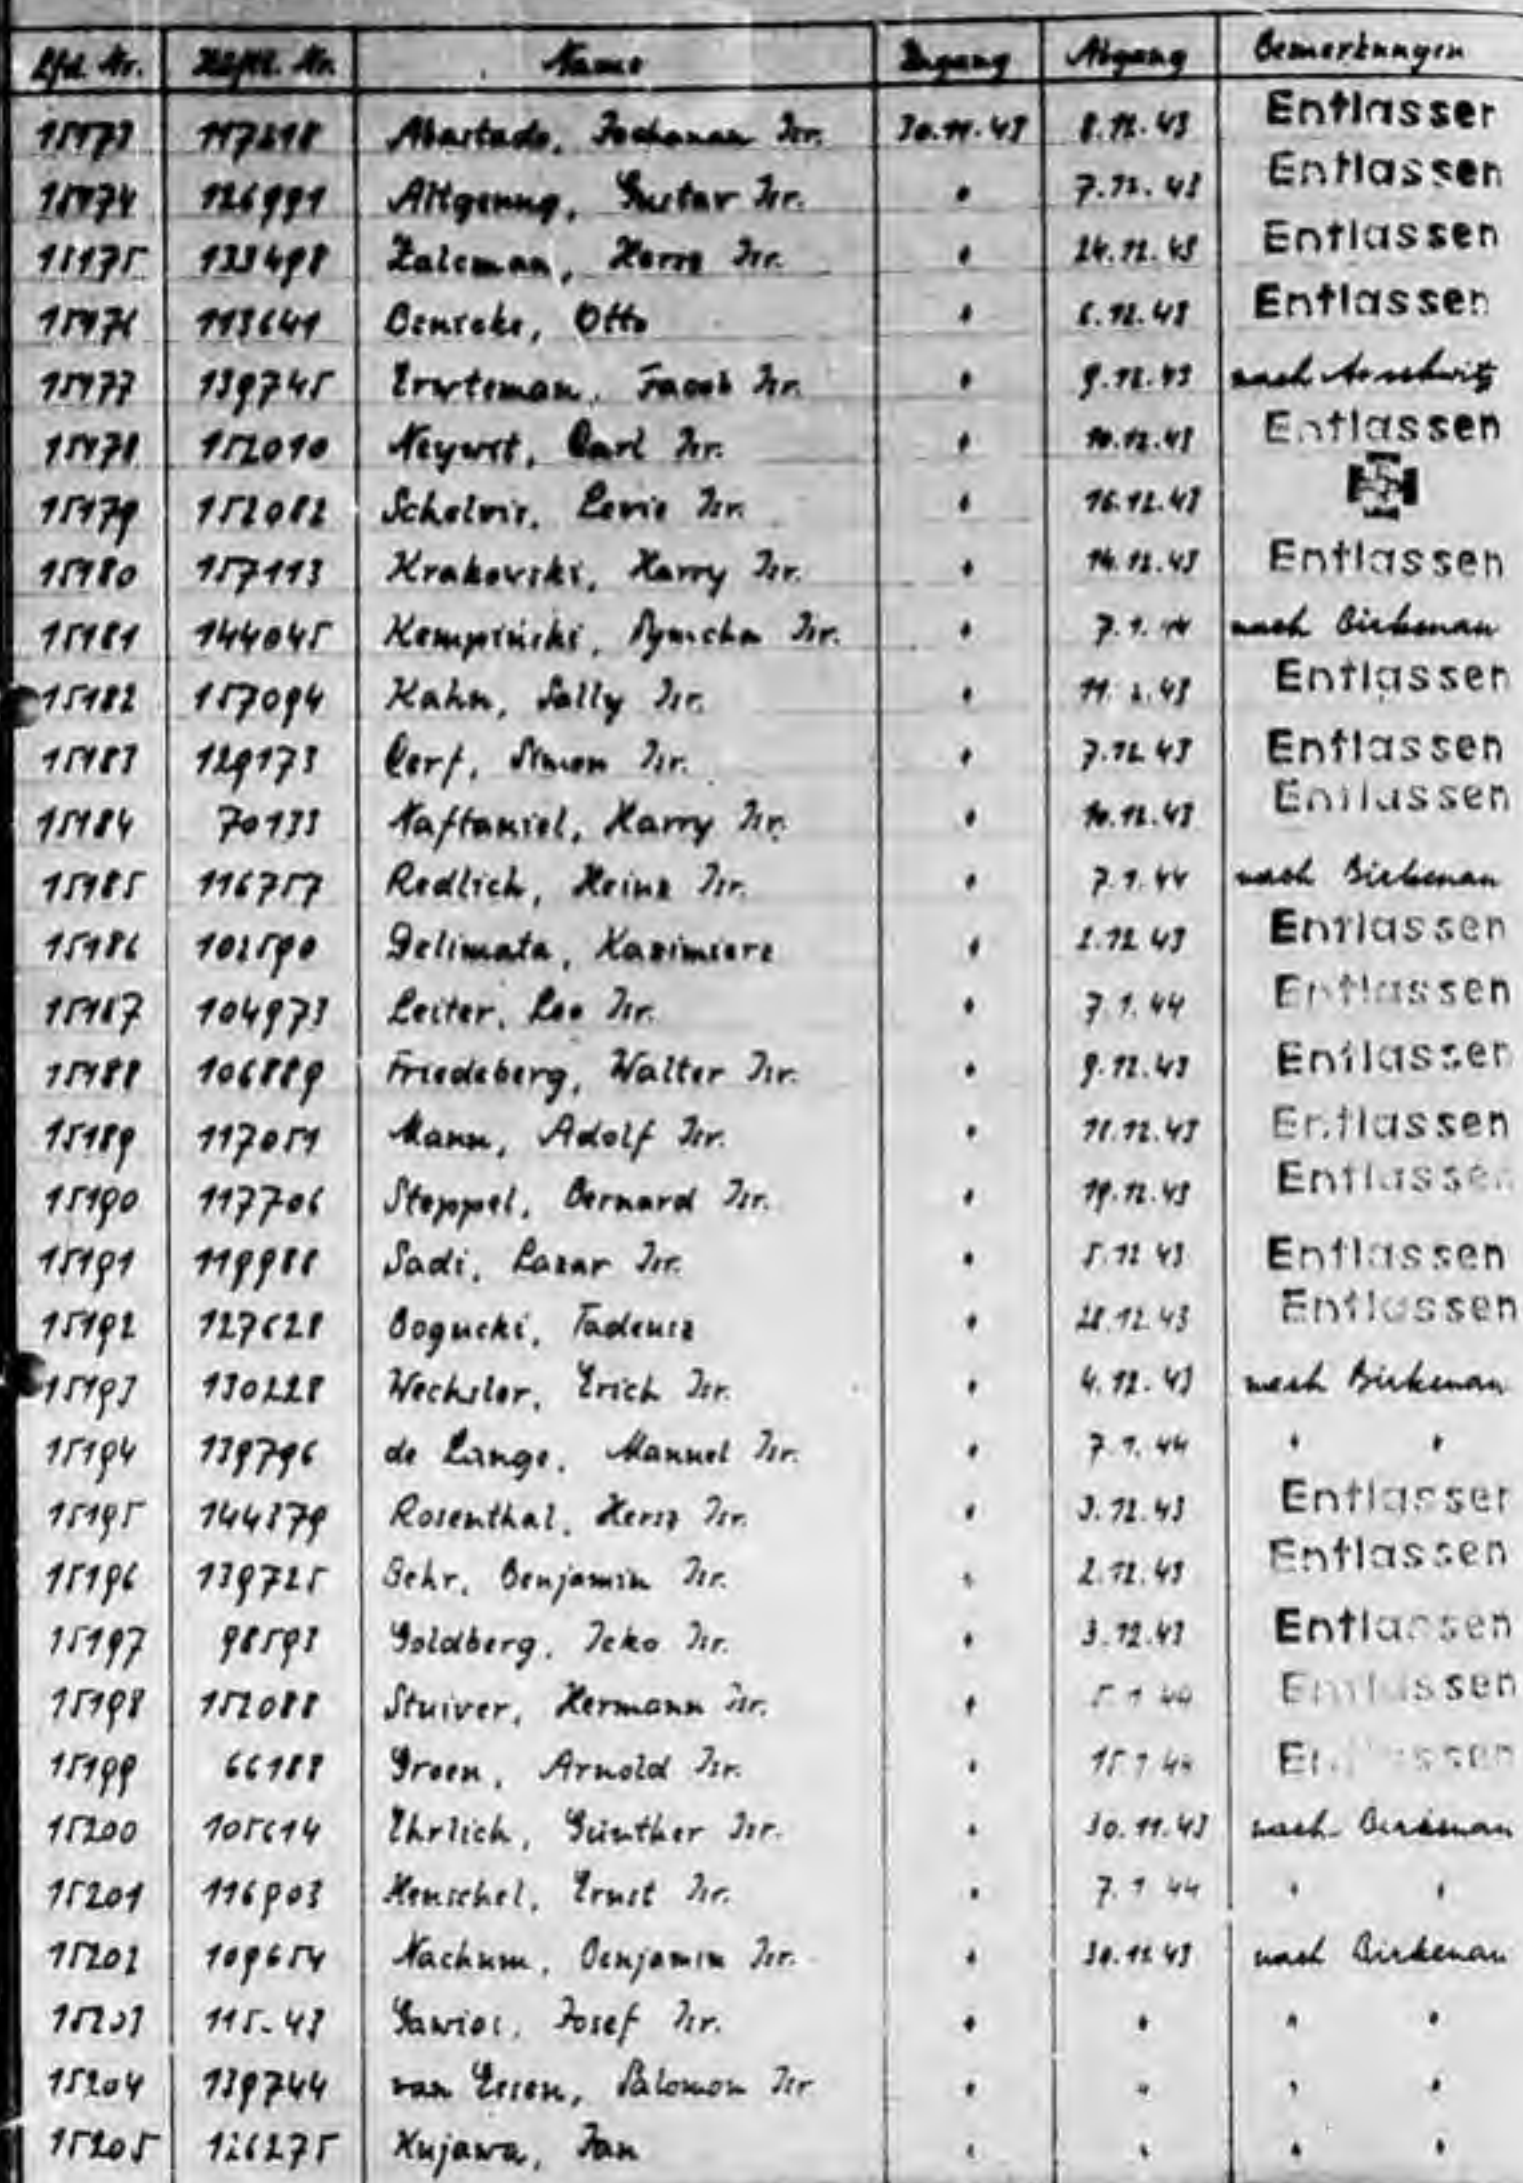 Lfd. Nr. Häftl. Nr. Name Zugang Abgang Bemerkungen
15173 117218 Abastado, Jochanan Isr. 30.11.43 8.12.43 Entlassen
15174 126991 Altgenug, Gustav Isr. " 7.12.43 Entlassen
15175 133498 Zalcman, Hersz Isr. " 24.12.43 Entlassen
15176 113641 Benicke, Otto " 6.12.43 Entlassen
15177 139745 Jacob Isr. " 9.12.43 nach Auschwitz
15178 152010 Carl Isr. " 10.12.43 Entlassen
15179 152082 Schelvis, Levie Isr. " 16.12.43
15180 157113 Krakovski, Harry Isr. " 14.12.43 Entlassen
15181 144045 Kempiński, Symcha Isr. " 7.1.44 nach Birkenau
15182 157094 Kahn, Sally Isr. " Entlassen
15183 129173 Cerf, Simon Isr. " 7.12.43 Entlassen
15184 70133 Naftaniel, Harry Isr. " 10.12.43 Entlassen
15185 116757 Redlich, Heinz Isr. " 7.1.44 nach Birkenau
15186 102590 Delimata, Kazimierz " 2.12.43 Entlassen
15187 104973 Leiter, Leo Isr. " 7.1.44 Entlassen
15188 106889 Friedeberg, Walter Isr. " 9.12.43 Entlassen
15189 117051 Mann, Adolf Isr. " 11.12.43 Entlassen
15190 117706 Steppel, Bernard Isr. " 19.12.43 Entlassen
15191 119988 Sadi, Lazar Isr. " 5.12.43 Entlassen
15192 127628 Bogucki, Tadeusz " 28.12.43 Entlassen
15193 130228 Wechsler, Erich Isr. " 4.12.43 nach Birkenau
15194 139796 de Lange, Manuel Isr. " 7.1.44 " "
15195 144379 Rosenthal, Hersz Isr. " 3.12.43 Entlassen
15196 139725 Behr, Benjamin Isr. " 2.12.43 Entlassen
15197 98593 Goldberg, Icko Isr. " 3.12.43 Entlassen
15198 152088 Stuiver, Hermann Isr. " 5.1.44 Entlassen
15199 66188 Green, Arnold Isr. " 15.1.44 Entlassen
15200 105614 Ehrlich, Günther Isr. " 30.11.43 nach Birkenau
15201 116903 Henschel, Ernst Isr. " 7.1.44 " "
15202 109654 Nachum, Benjamin Isr. " 30.11.43 nach Birkenau
15203 Josef Isr. " " " "
15204 139744 van Essen, Salomon Isr " " " "
15205 126275 Kujawa, Jan " " " "